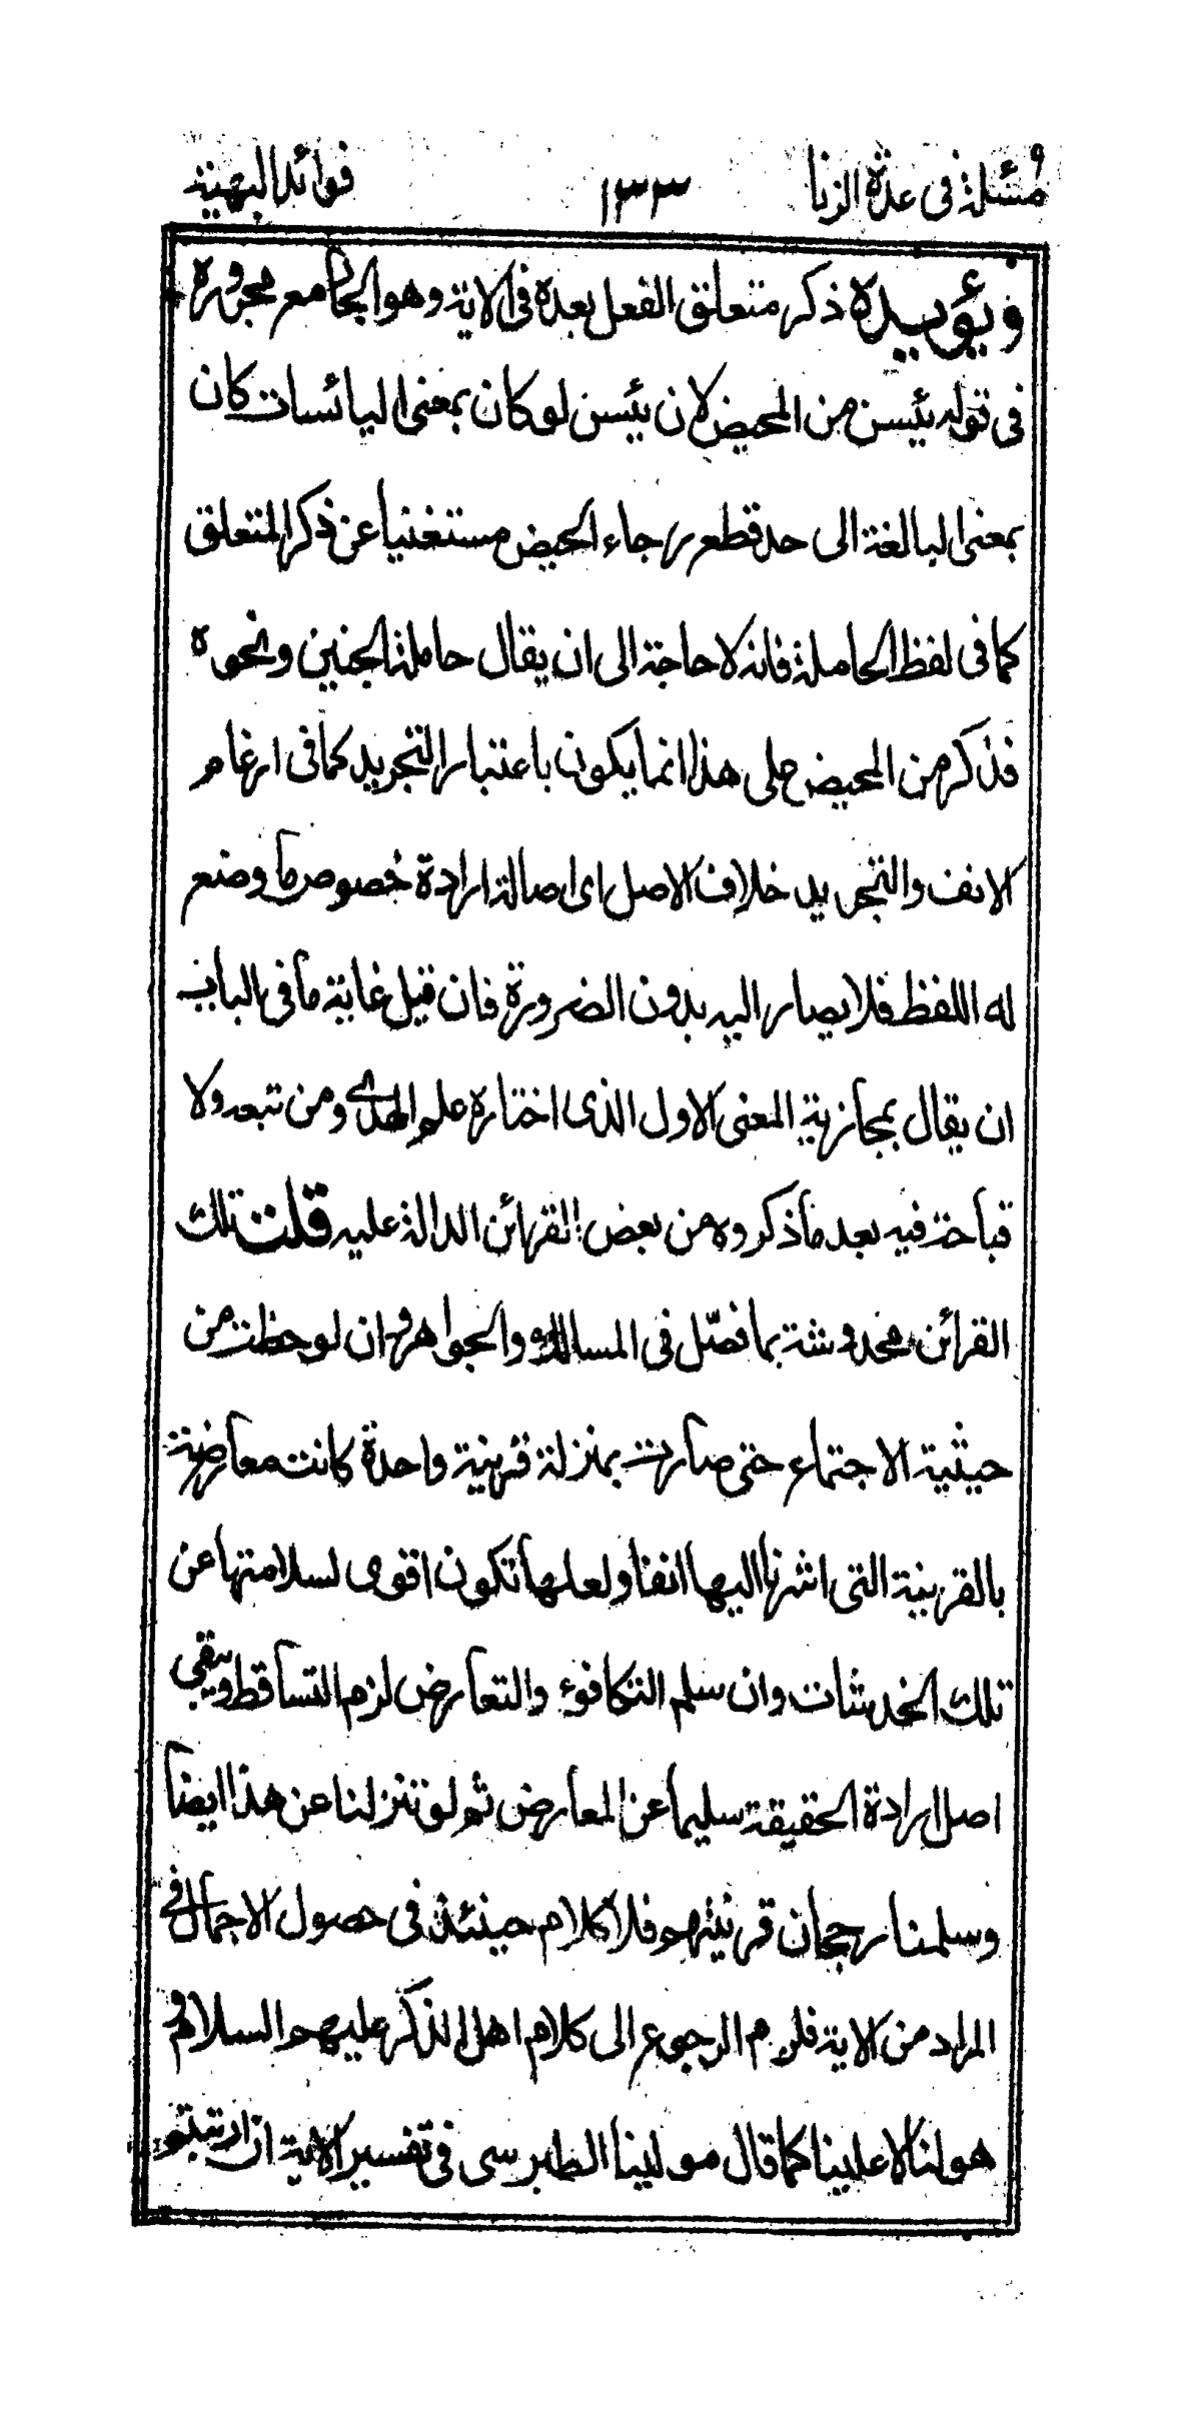 مسئلة فى عدة الزنا ١٣٣ فوائد البهية
ويؤيده ذكر متعلق الفعل بعده فى الاية وهو الجار مع مجروره
فى قوله يئسن من المحيض لان يئسن لو كان بمعنى اليائسات كان
بمعنى البالغة الى حد قطع رجاء الحيض مستغنيا عن ذكر المتعلق
كما فى لفظ الحاملة فانه لا حاجة الى ان يقال حاملة الجنين ونحوه
فذكر من المحيض على هذا انما يكون باعتبار التجريد كما فى ارغام
الانف والتجريد خلاف الاصل اى اصالة ارادة خصوص ما وضع
له اللفظ فلا يصار اليه بدون الضرورة فان قيل غاية ما فى الباب
ان يقال بمجازية المعنى الاول الذى اختاره علم الهدى ومن تبعه ولا
قباحة فيه بعد ما ذكروه من بعض القرائن الدالة عليه قلت تلك
القرائن مخدوشة بما فصّل فى المسالك والجواهر وان لوحظت من
حيثية الاجتماع حتى صارت بمنزلة قرينة واحدة كانت معارضة
بالقرينة التى اشرنا اليها انفا ولعلها تكون اقوى لسلامتها عن
تلك الخدشات وان سلم التكافؤ والتعارض لزم التساقط ويبقى
اصل ارادة الحقيقة سليما عن المعارض ثم لو تنزلنا عن هذا ايضا
وسلمنا رجحان قرينتهم فلا كلام حينئذ فى حصول الاجمال فى
المراد من الاية فلزم الرجوع الى كلام اهل الذكر عليهم السلام و
هو لنا لا علينا كما قال مولينا الطبرسى فى تفسير الاية ان ارتبتم